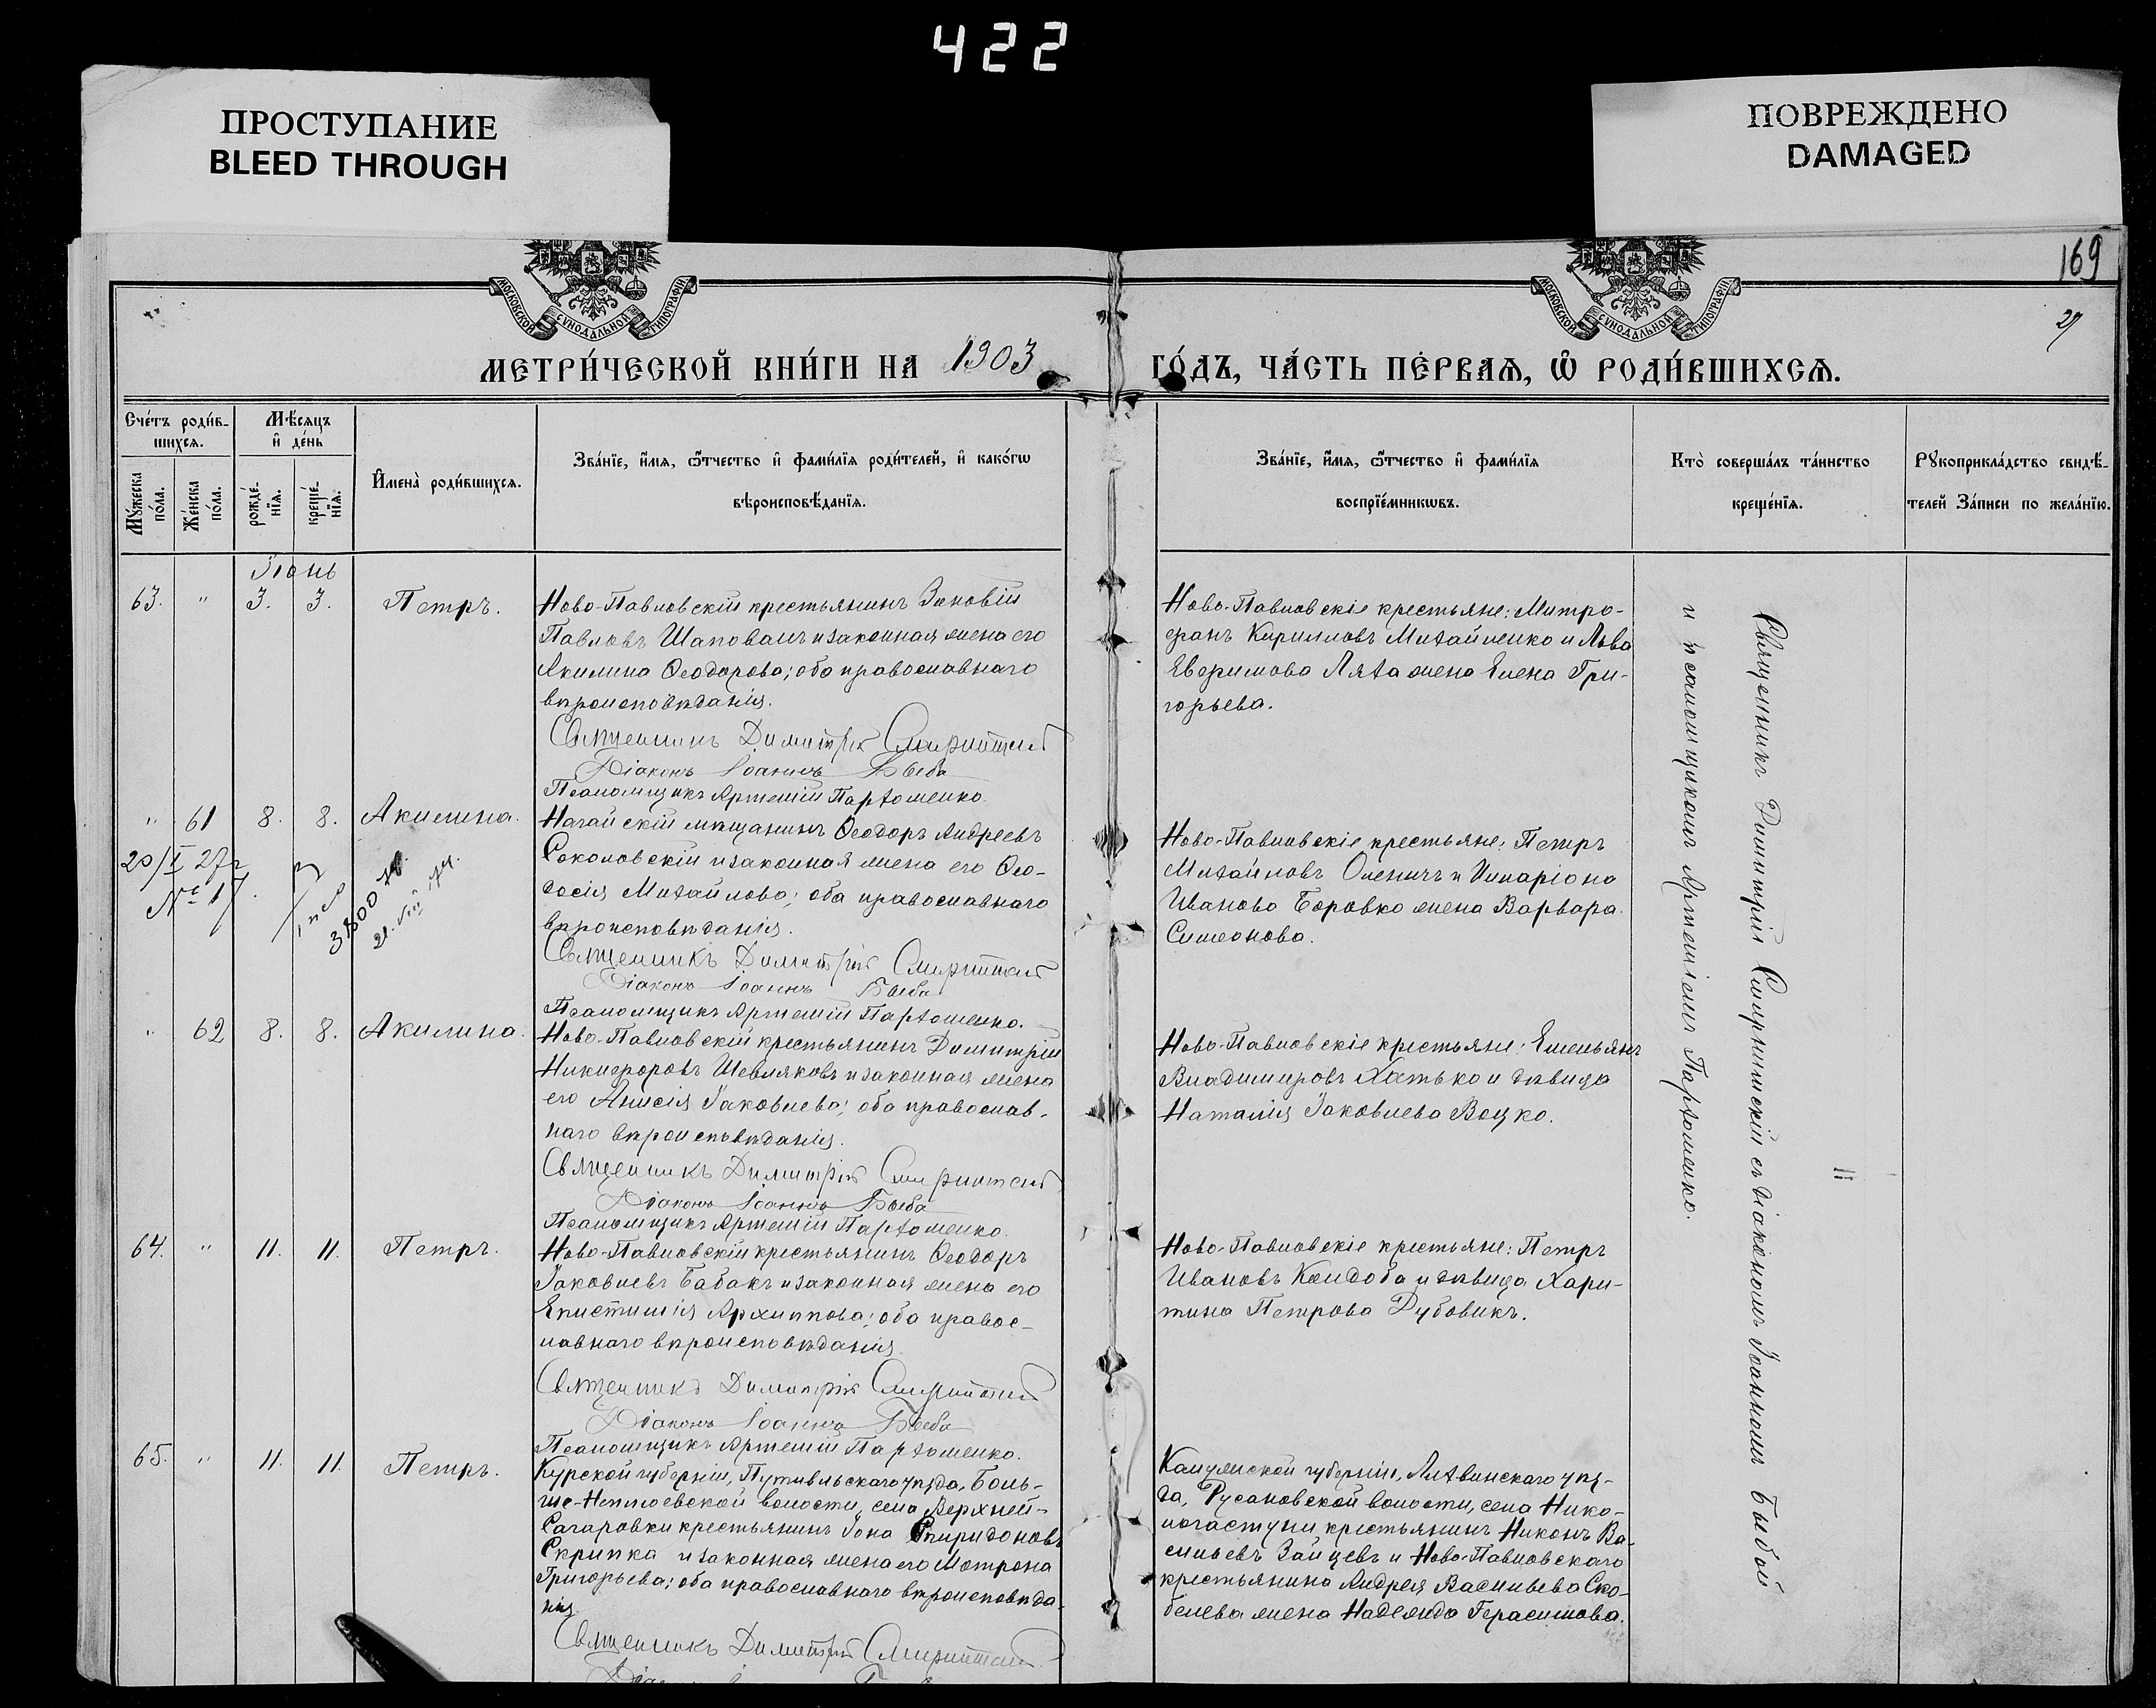 422
ПРОСТУПАНИЕ
BLEED THROUGH
ПОВРЕЖДЕНО
DAMAGED
169
27
МОСКОВСКОЙ СѴНОДАЛЬНОЙ ТИПОГРАФІИ
МОСКОВСКОЙ СѴНОДАЛЬНОЙ ТИПОГРАФІИ
МЕТРИ́ЧЕСКОЙ КНИ́ГИ НА 1903
ГО́ДЪ, ЧА́СТЬ ПЕ́РВАѦ, Ѽ РОДИ́ВШИХСѦ.
Счéтъ роди́в-
шихсѧ.
Мꙋ́жеска по́ла.
Же́нска по́ла.
Мѣ́сѧцъ
и҆ де́нь
рожде́-
нїѧ.
креще́-
нїѧ.
И҆мена̀ роди́вшихсѧ.
Зва́нїе, и҆́мѧ, ѻ҆́тчество и҆ фами́лїѧ роди́телей, и҆ како́гѡ
вѣроисповѣ́данїѧ.
Зва́нїе, и҆́мѧ, ѻ҆́тчество и҆ фами́лїѧ
воспрїе́мникѡвъ.
Кто̀ соверша́лъ та́инство
креще́нїѧ.
Рꙋкоприкла́дство свидѣ́-
телей За́писи по жела́нїю.
Іюнь
63. " 3. 3. Петръ.
Ново-Павловскій крестьянинъ Зиновій
Павловъ Шаповалъ и законная жена его
Акилина Ѳеодорова; оба православнаго
вѣроисповѣданія.
Священникъ Димитрій
Діаконъ Іоаннъ Быба
Псаломщикъ Артемій Пархоменко.
Ново-Павловскіе крестьяне: Митро-
фанъ Кирилловъ Михайленко и Льва
Евфимова Ляха жена Елена Гри-
горьева.
" 61 8. 8. Акилина.
20/X 27 г
№ 17
Ногайскій мѣщанинъ Ѳеодоръ Андреевъ
Соколовскій и законная жена его Ѳео-
досія Михайлова; оба православнаго
вѣроисповѣданія.
Священникъ Димитрій
Діаконъ Іоаннъ Быба
Псаломщикъ Артемій Пархоменко.
Ново-Павловскіе крестьяне: Петръ
Михайловъ Оленичъ и Иларіона
Иванова Боровко жена Варвара
Симеонова.
" 62 8. 8. Акилина.
Ново-Павловскій крестьянинъ Димитрій
Никифоровъ Шевляковъ и законная жена
его Анисія Іаковлева; оба православ-
наго вѣроисповѣданія.
Священникъ Димитрій
Діаконъ Іоаннъ Быба
Псаломщикъ Артемій Пархоменко.
Ново-Павловскіе крестьяне: Емельянъ
Владимировъ Хатько и дѣвица
Наталія Іаковлева Воцко.
64. " 11. 11. Петръ.
Ново-Павловскій крестьянинъ Ѳеодоръ
Іаковлевъ Бабакъ и законная жена его
Епистимія Архиппова; оба правос-
лавнаго вѣроисповѣданія.
Священникъ Димитрій
Діаконъ Іоаннъ Быба
Псаломщикъ Артемій Пархоменко.
Ново-Павловскіе крестьяне: Петръ
Ивановъ Кандоба и дѣвица Хари-
тина Петрова Дубовикъ.
65. " 11. 11. Петръ.
Курской губерніи, Путивльскаго уѣзда, Боль-
ше-Неплюевской волости, села Верхней-
Сагаровки крестьянинъ Іона Спиридоновъ
Скрипка и законная жена его Мотрона
Григорьева; оба православнаго вѣроисповѣда-
нія
Священникъ Димитрій
Калужской губерніи, Лихвинскаго уѣз-
да, Русановской волости, села Нико-
логастуни крестьянинъ Никонъ Ва-
сильевъ Зайцевъ и Ново-Павловскаго
крестьянина Андрея Васильева Ско-
белева жена Надежда Герасимова.
Священникъ Димитрій Смирнитскій съ діакономъ Іоанномъ Быбой
и псаломщикомъ Артеміемъ Пархоменко.